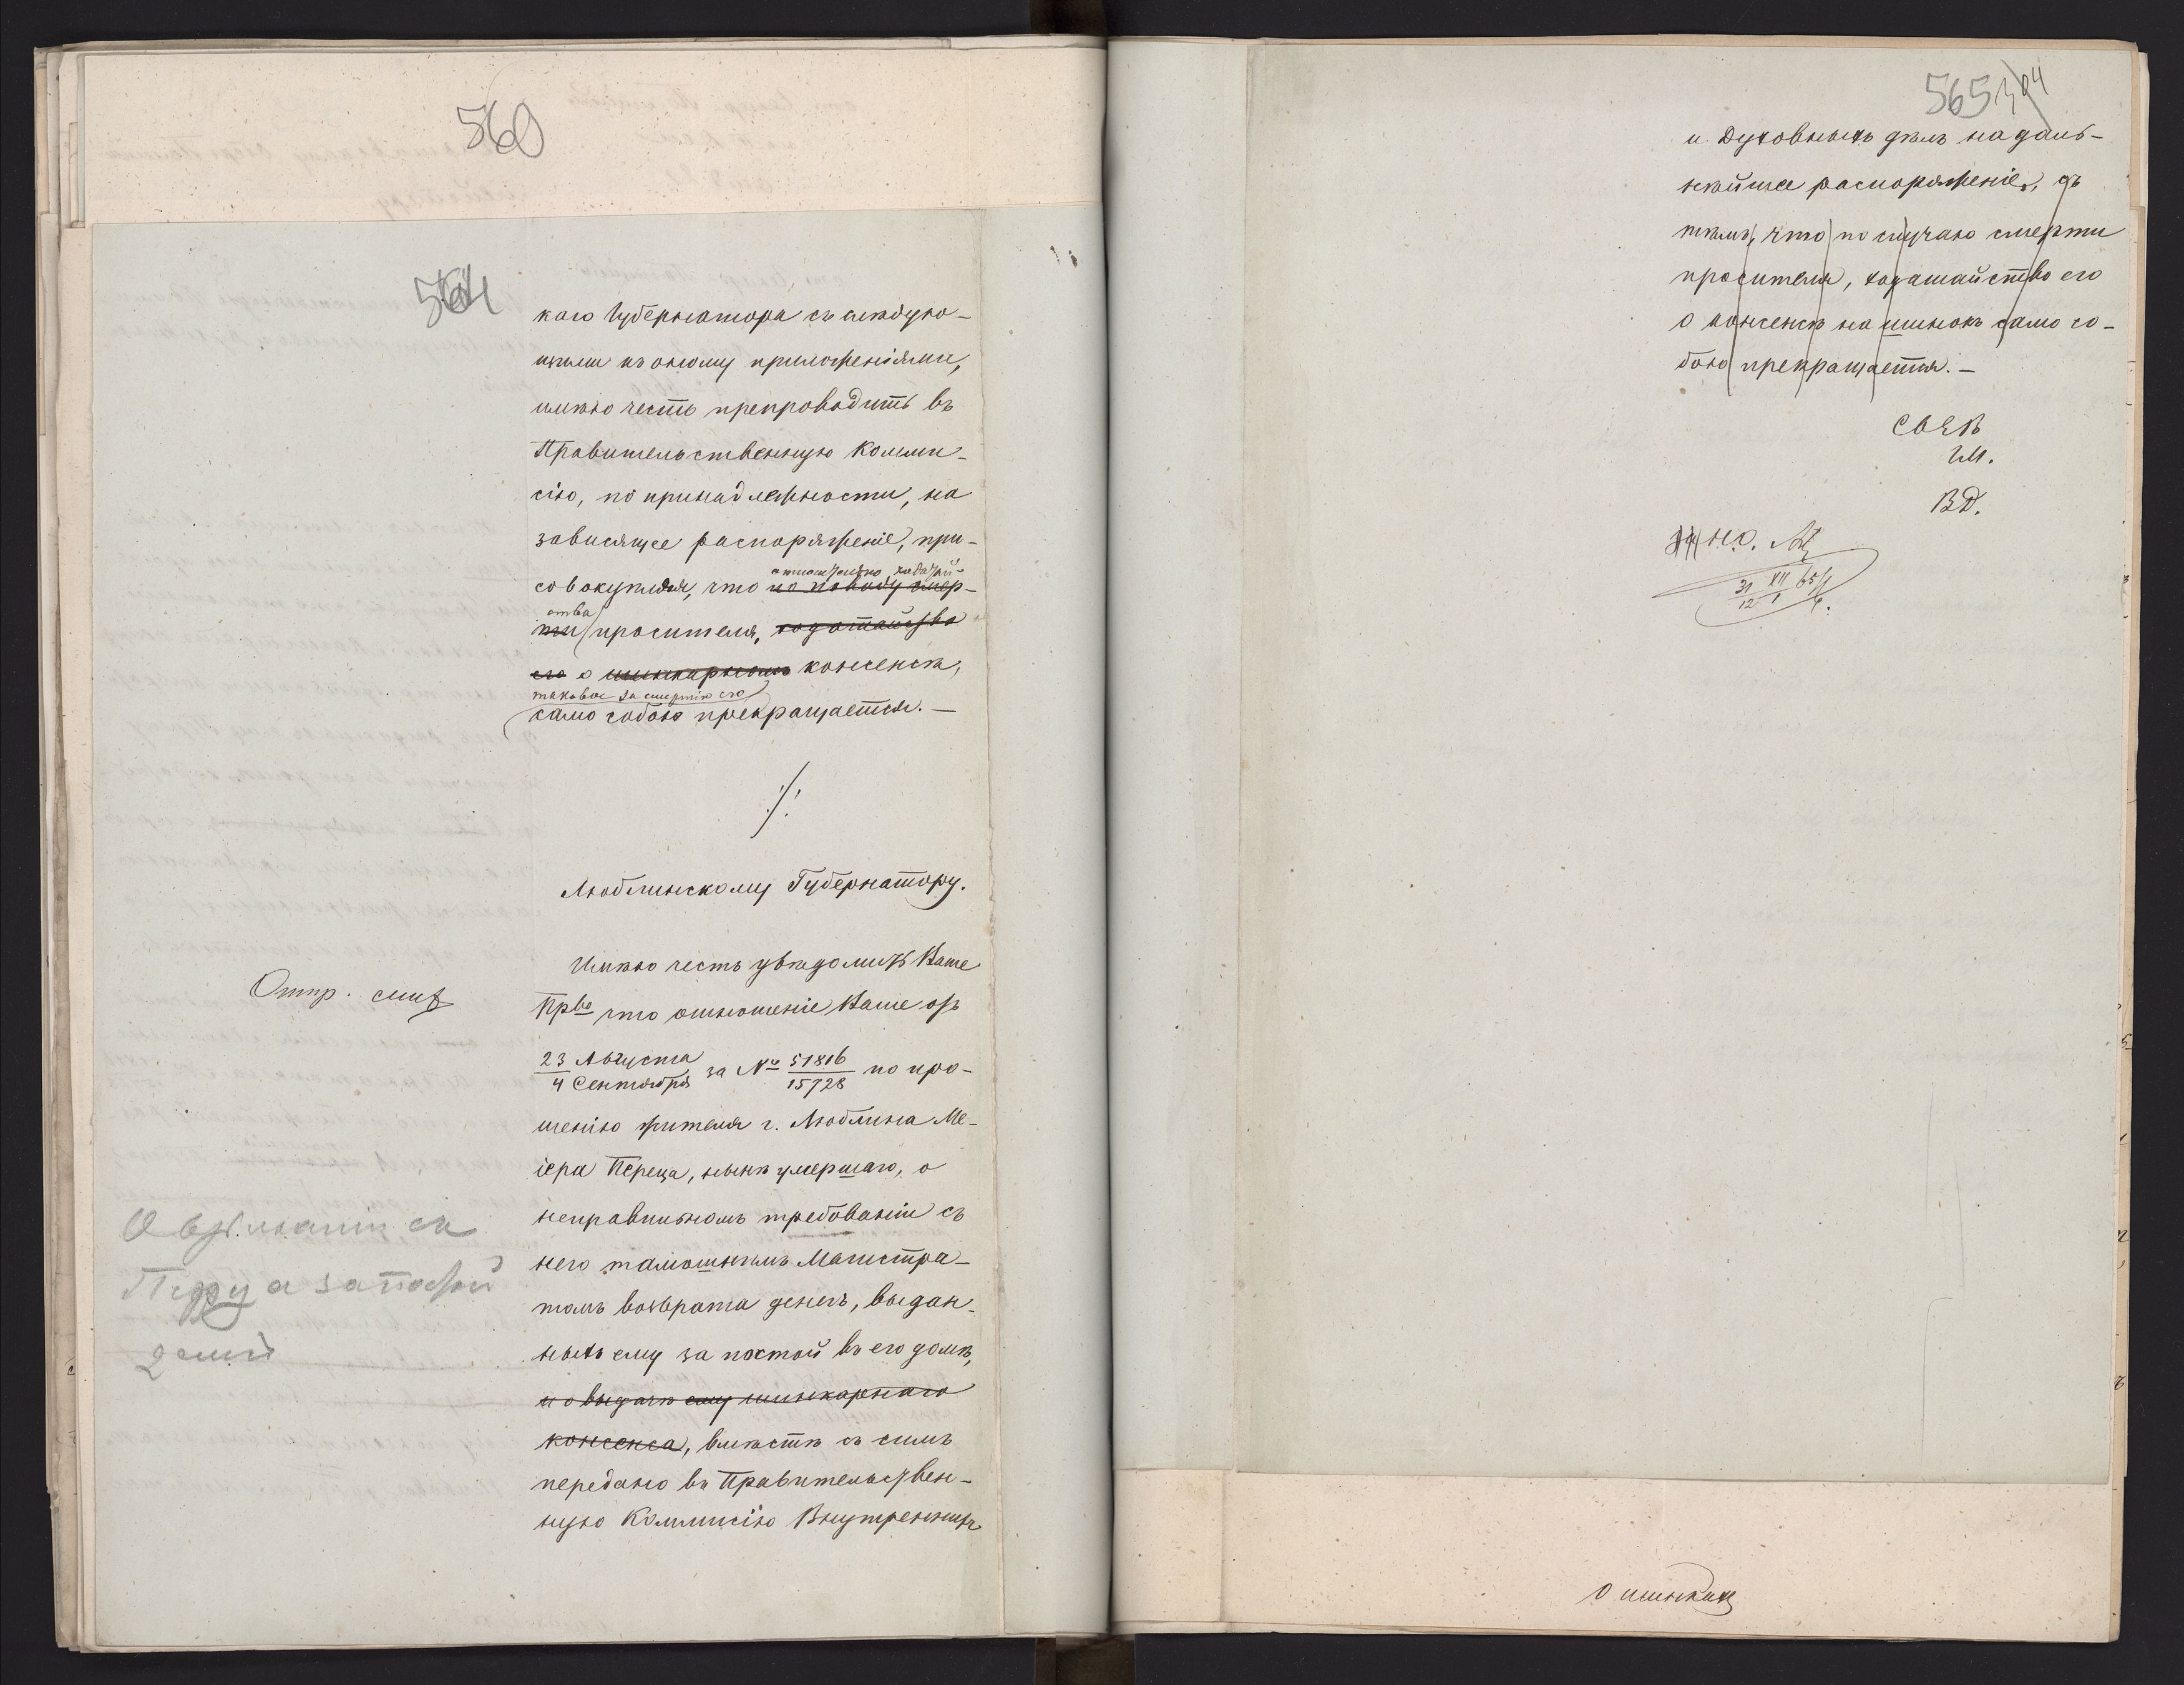 560
564
каго Губернатора съ слѣдую-
щими къ оному приложеніями,
имѣю честь препроводить въ
Правительственную Комми-
сію, по принадлежности, на
зависящее распоряженіе, при-
относительно ходатай-
совокупляя, что по поводу смер-
ства
ти просителя, ходатайство
его о шинкарномъ консенсѣ,
таковое за смертію его
само собою прекращается. —
Люблинскому Губернатору.
Имѣю честь увѣдомить Ваше
Отпр.
Прво что отношеніе Ваше отъ
23 Августа / 4 Сентября за № 51816 / 15728 по про-
шенію жителя г. Люблина Ме-
іера Переца, нынѣ умершаго, о
неправильномъ требованіи съ
него тамошнимъ Магистра-
томъ возврата денегъ, выдан-
ныхъ ему за постой въ его домѣ,
и о выдачѣ ему шинкарнаго
консенса, вмѣстѣ съ симъ
передано въ Правительствен-
ную Коммисію Внутреннихъ
О взысканіи съ
Переца за постой
565 304
и Духовныхъ дѣлъ на даль-
нѣйшее распоряженіе, съ
тѣмъ, что по случаю смерти
просителя, ходатайство его
о консенсѣ на шинокъ само со-
бою прекращается. —
ВД.
Н.О.
31 XII 65
12 I 6
О шинкахъ